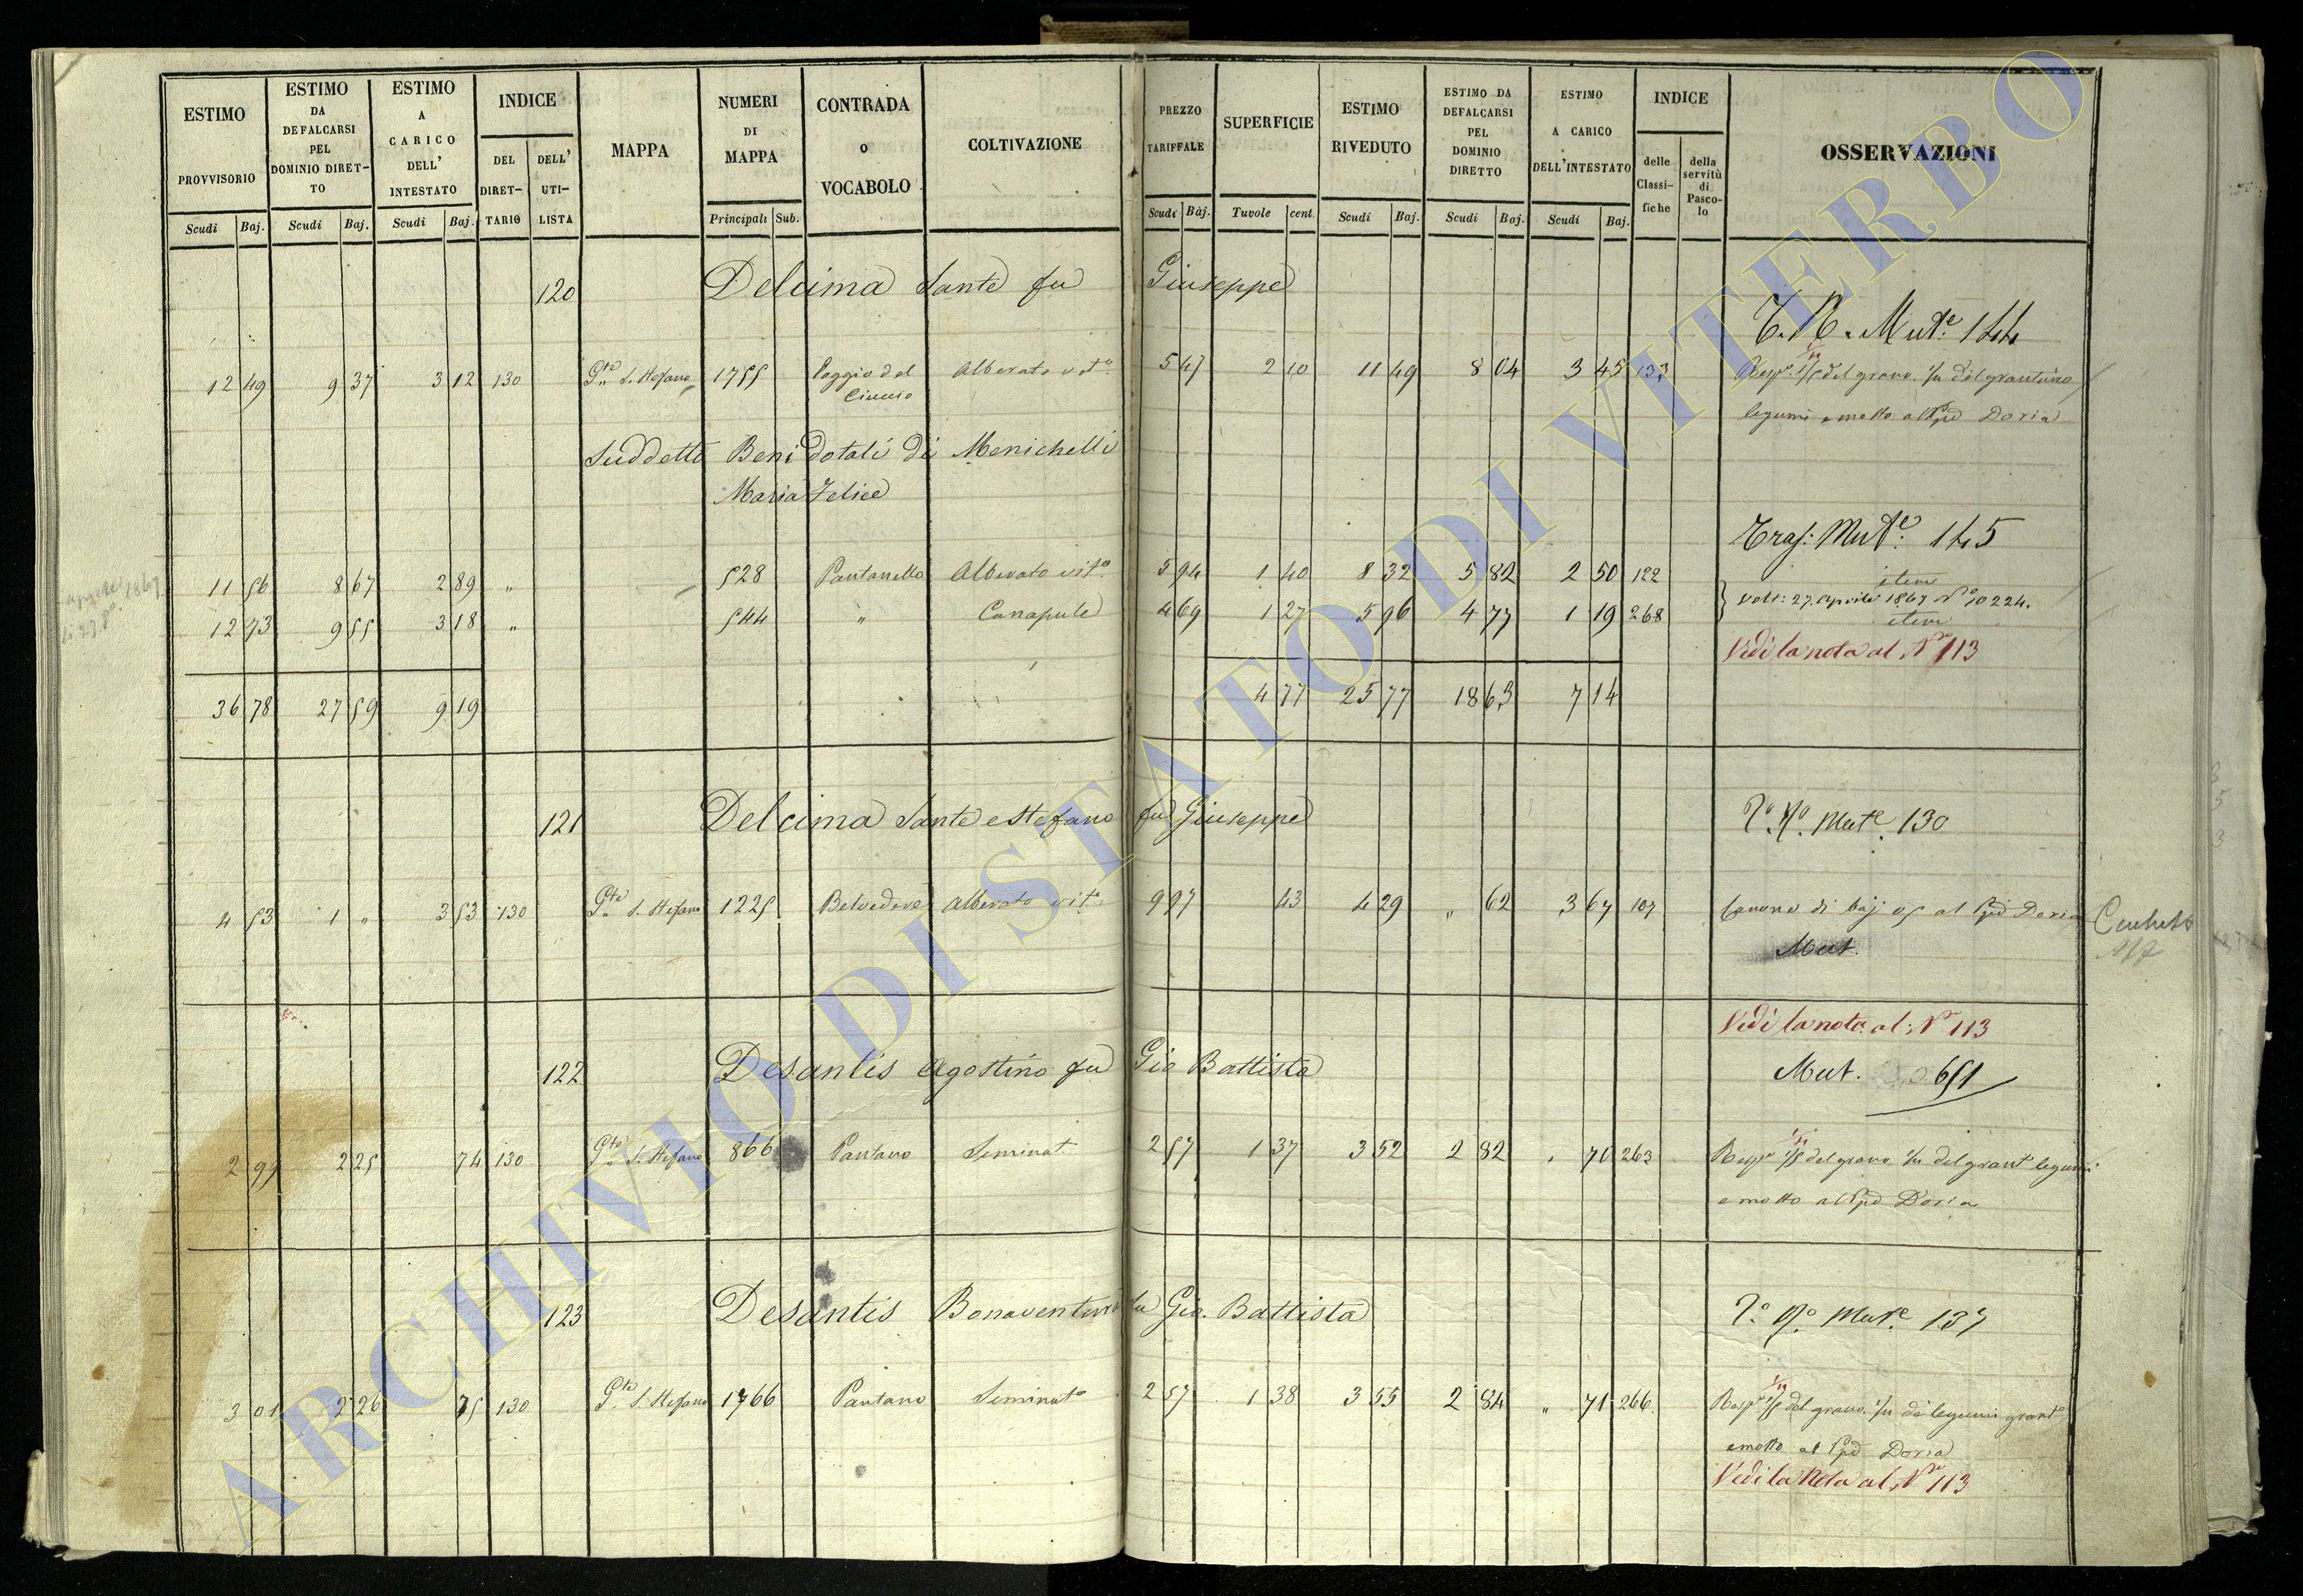 ESTIMO PROVVISORIO Scudi Baj.
ESTIMO DA DEFALCARSI PEL DOMINIO DIRET-TO Scudi Baj.
ESTIMO A CARICO DELL' INTESTATO Scudi Baj.
INDICE DEL DIRET-TARIO DELL' UTI-LISTA
MAPPA
NUMERI DI MAPPA Principali Sub.
CONTRADA O VOCABOLO
COLTIVAZIONE
PREZZO TARIFFALE Scudi Baj.
SUPERFICIE Tavole cent.
ESTIMO RIVEDUTO Scudi Baj.
ESTIMO DA DEFALCARSI PEL DOMINIO DIRETTO Scudi Baj.
ESTIMO A CARICO DELL'INTESTATO Scudi Baj.
INDICE delle Classi-fiche della servitù di Pasco-lo
OSSERVAZIONI
120 Delcima Sante fu Giuseppe
T. N. Mut.e 144
12 49 9 37 3 12 130 S. Stefano 1755 Poggio del Ciuccio Alberato vit.o 5 47 2 10 11 49 8 04 3 45 133 1/5 del grano del granturco
legumi e mosto al Ppe Doria
Suddetto Beni dotali di Menichelli
Maria Felice
Tras: Mut.e 145
11 56 8 67 2 89 " 528 Pantanello Alberato vit.o 5 94 1 40 8 32 5 82 2 50 122 item
Volt: 27 Aprile 1867 N.o 10224.
12 73 9 55 3 18 " 544 " Canapule 4 69 1 27 5 96 4 77 1 19 268 item
Vedi la nota al N.o 113
36 78 27 59 9 19 4 77 25 77 18 63 7 14
121 Delcima Sante e Stefano fu Giuseppe
Mut.e 130
4 53 1 " 3 53 130 S. Stefano 1225 Belvedere Alberato vit.o 9 97 43 4 29 " 62 3 67 107 Canone di baj 05 al Ppe Doria
Mut.
Vedi la nota al N.o 113
122 Desantis Agostino fu Gio Battista
Mut. 651
2 99 2 25 74 130 S. Stefano 866 Pantano Seminat.o 2 57 1 37 3 52 2 82 " 70 263 1/5 del grano del grant.o legumi
e mosto al Ppe Doria
123 Desantis Bonaventura fu Gio. Battista
Mut.e 137
3 01 2 26 75 130 S. Stefano 1766 Pantano Seminat.o 2 57 1 38 3 55 2 84 " 71 266 1/5 del grano di legumi grant.o
e mosto al Ppe Doria
Vedi la Nota al N.o 113
ARCHIVIO DI STATO DI VITERBO